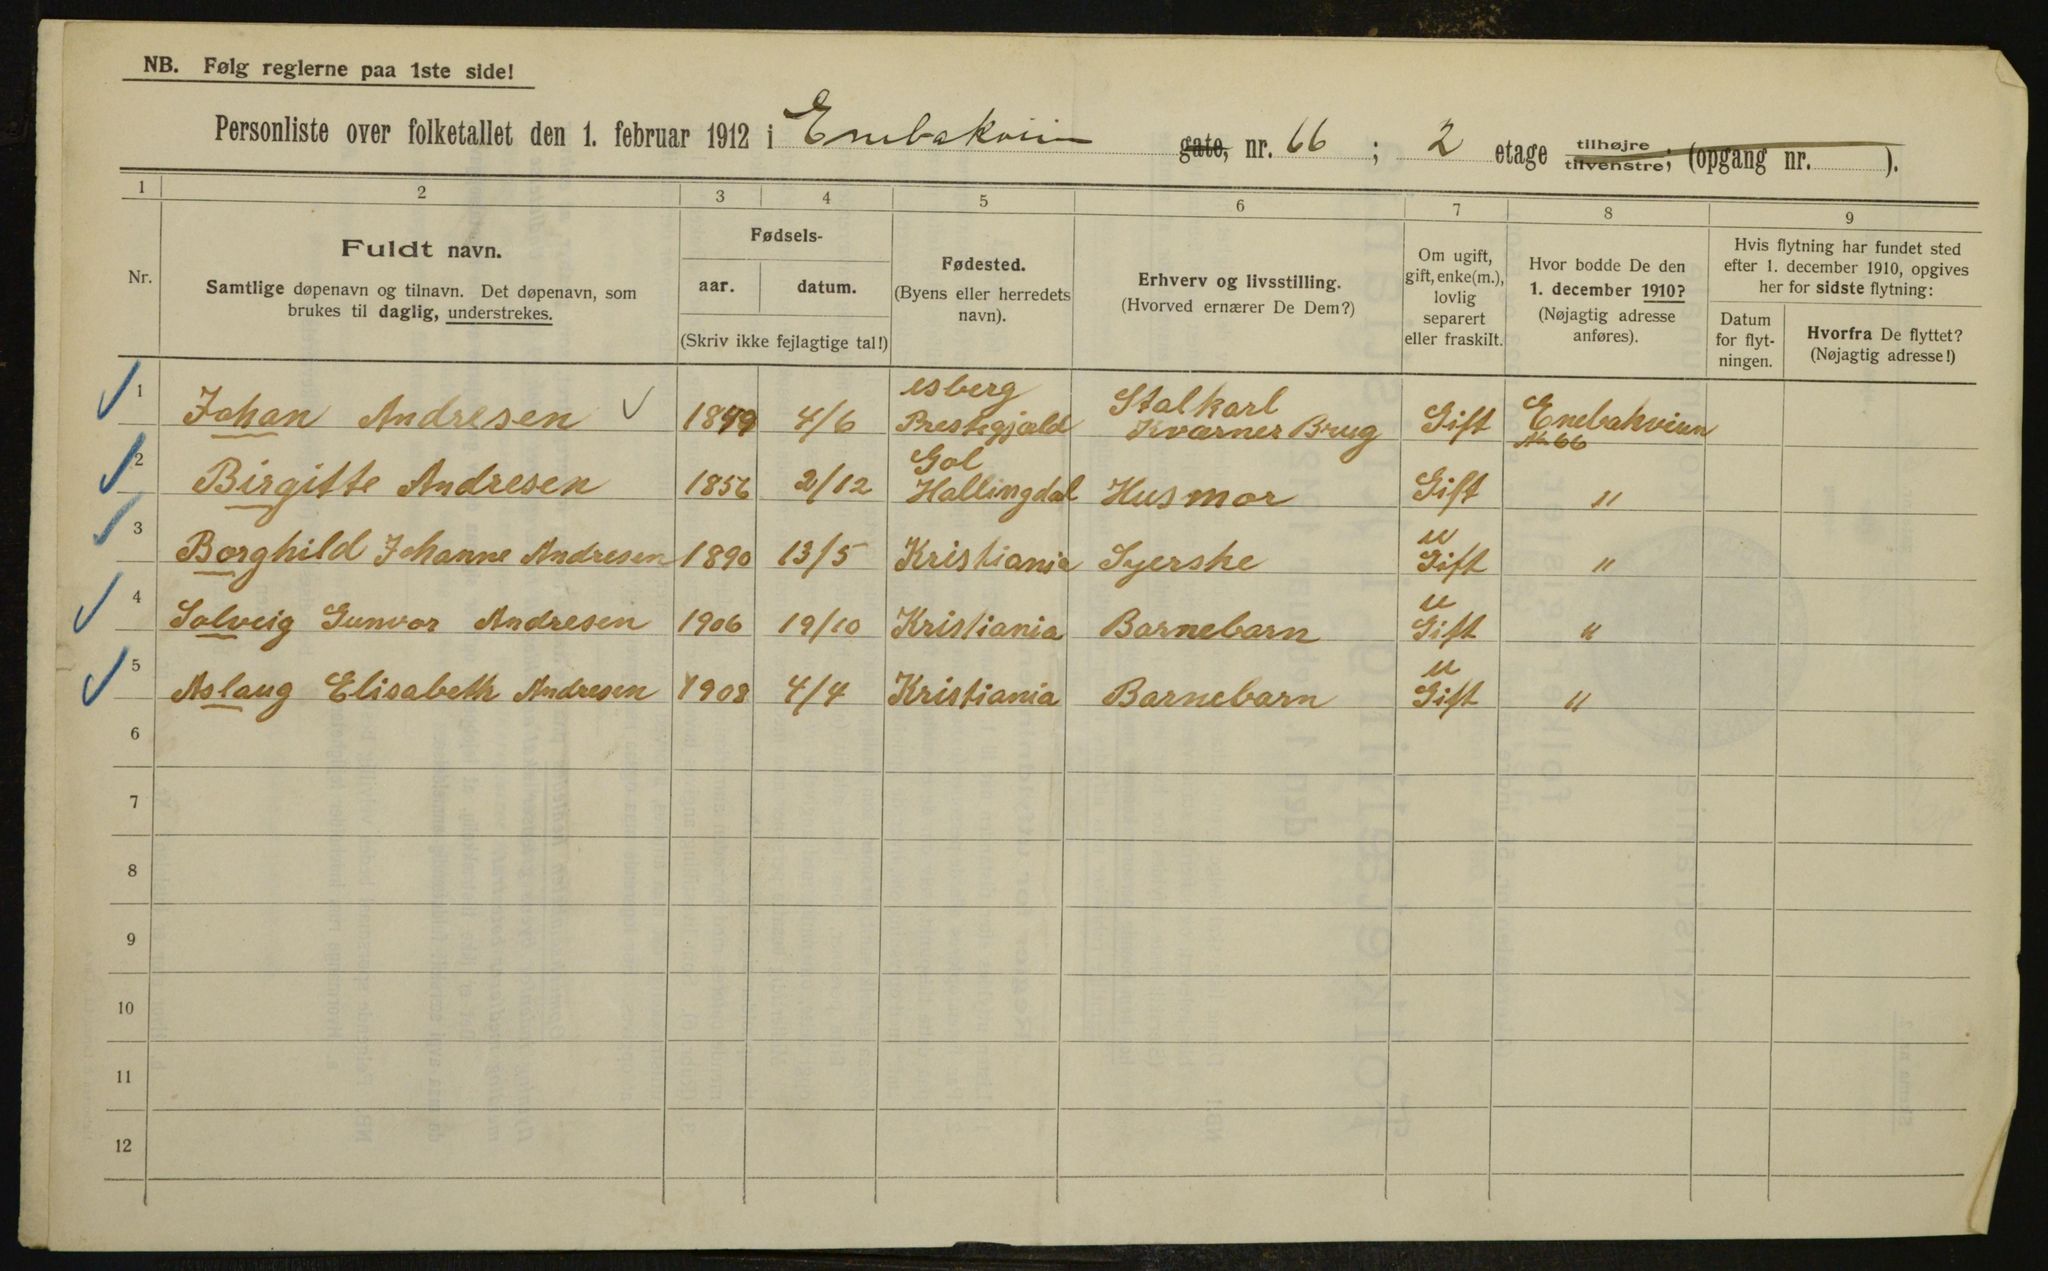 NB. Følg reglerne paa 1ste side!
Personliste over folketallet den 1. februar 1912 i Enebakveien gate, nr. 66 ; 2 etage tilhøjre tilvenstre; (opgang nr. ).
1 2 3 4 5 6 7 8 9
Nr.
Fuldt navn.
Samtlige døpenavn og tilnavn. Det døpenavn, som
brukes til daglig, understrekes.
Fødsels-
aar. datum.
(Skriv ikke fejlagtige tal!)
Fødested.
(Byens eller herredets
navn).
Erhverv og livsstilling.
(Hvorved ernærer De Dem?)
Om ugift,
gift, enke(m.),
lovlig
separert
eller fraskilt.
Hvor bodde De den
1. december 1910?
(Nøjagtig adresse
anføres).
Hvis flytning har fundet sted
efter 1. december 1910, opgives
her for sidste flytning:
Datum
for flyt-
ningen.
Hvorfra De flyttet?
(Nøjagtig adresse!)
esberg
1 Johan Andresen 1849 4/6 Prestegjæld Stalkarl Kværner Brug Gift Enebakvein
No 66
Gol
2 Birgitte Andresen 1856 2/12 Hallingdal Husmor Gift "
3 Borghild Johanne Andresen 1890 13/5 Kristiania Syerske u Gift "
4 Solveig Gunvor Andresen 1906 19/10 Kristiania Barnebarn u Gift "
5 Aslaug Elisabeth Andresen 1908 4/4 Kristiania Barnebarn u Gift "
6
7
8
9
10
11
12